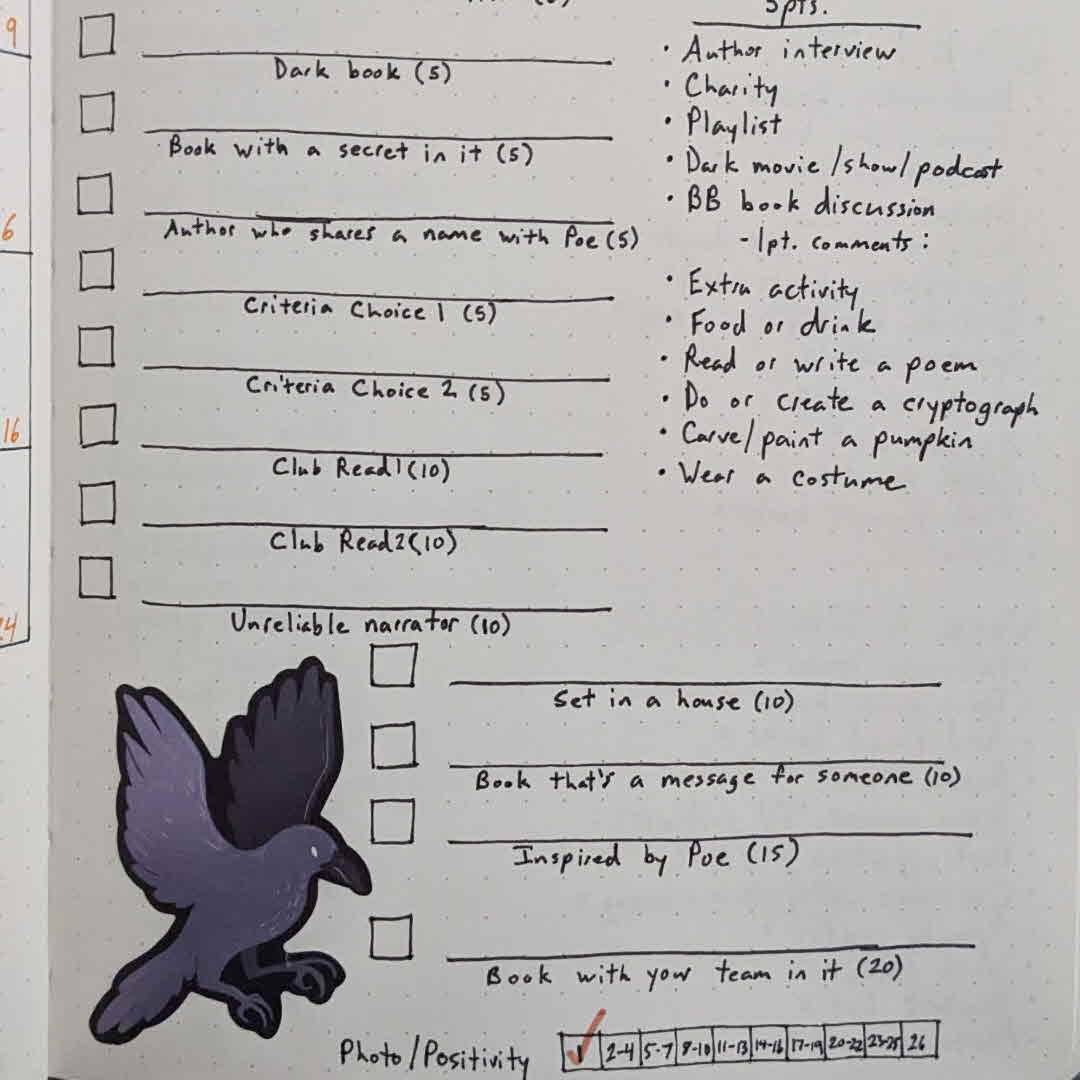 5pts.
Dark book (5)
Book with a secret in it (5)
Author who shares a name with Poe (5)
Criteria Choice 1 (5)
Criteria Choice 2 (5)
Club Read 1 (10)
Club Read 2 (10)
Unreliable narrator (10)
Set in a house (10)
Book that's a message for someone (10)
Inspired by Poe (15)
Book with your team in it (20)
• Author interview
• Charity
• Playlist
• Dark movie/show/podcast
• BB book discussion
- 1pt. comments:
• Extra activity
• Food or drink
• Read or write a poem
• Do or create a cryptograph
• Carve/paint a pumpkin
• Wear a costume
Photo/Positivity 1 2-4 5-7 8-10 11-13 14-16 17-19 20-22 23-25 26
9
6
16
24